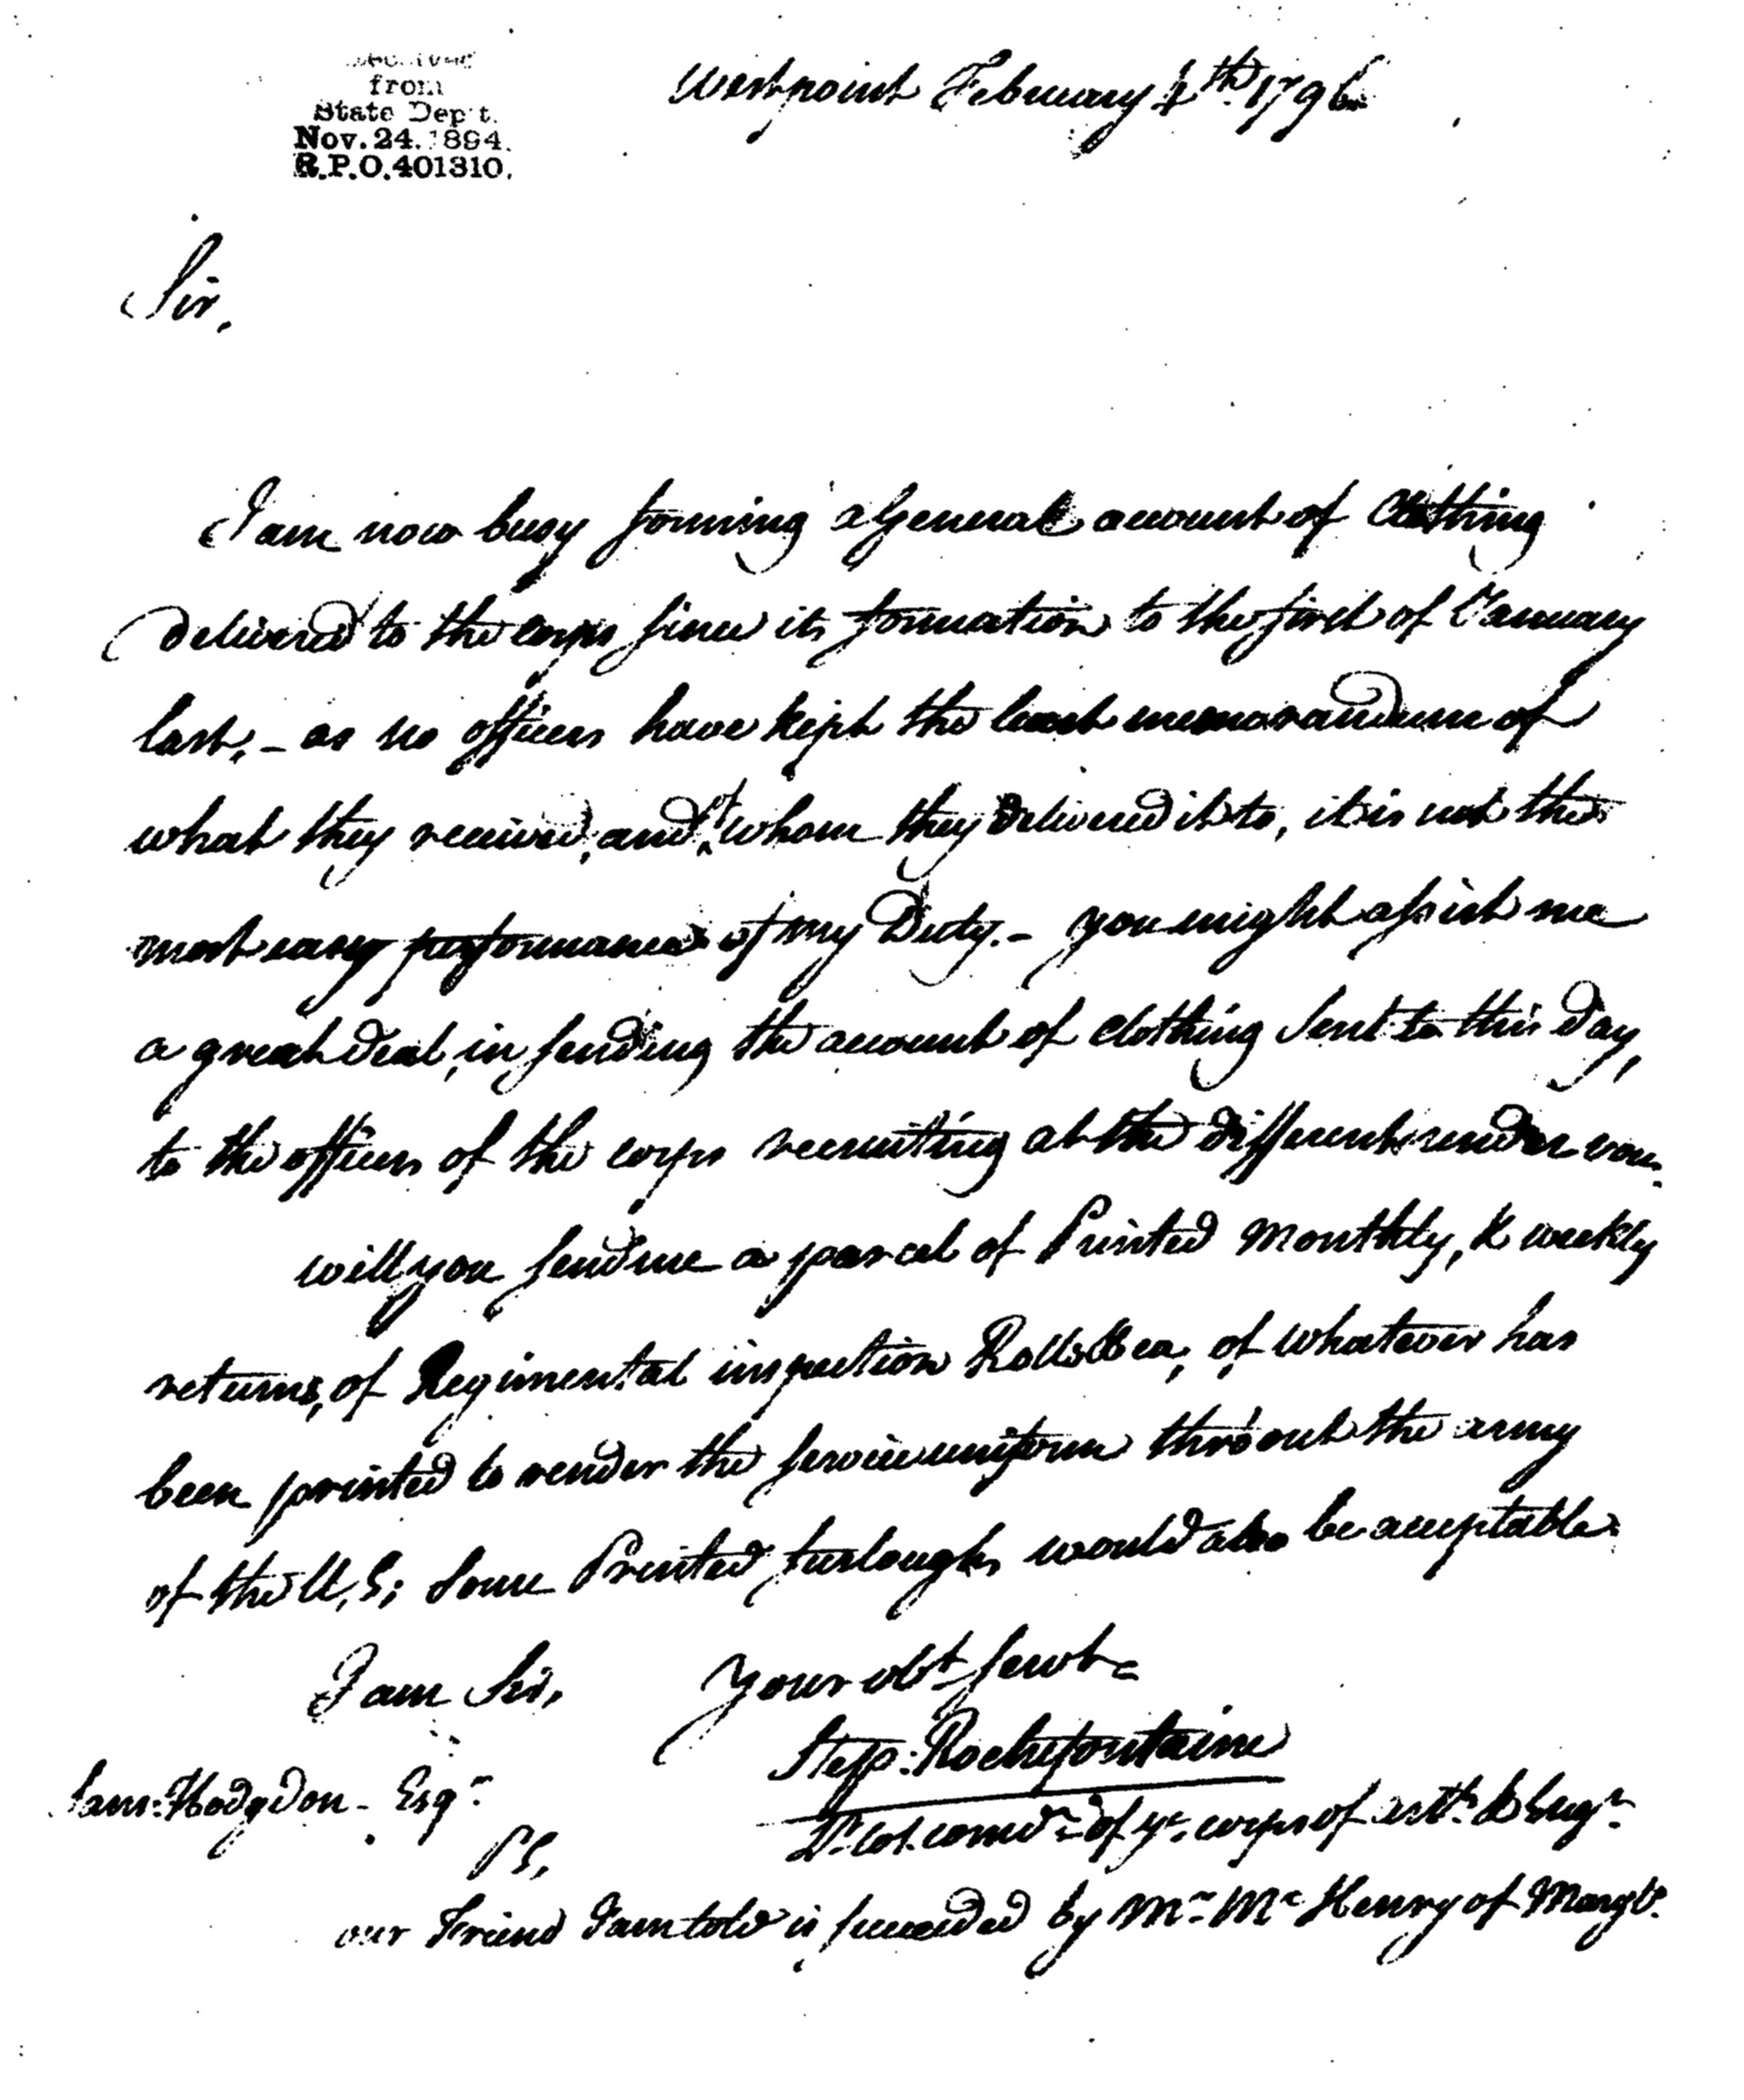 Received
from
State Dep't.
Nov. 24. 1894.
R.P.O. 401310.
Westpoint February 4th. 1796
Sir,
I am now busy forming a General account of Clothing
delivered to the corps since its formation to the first of January
last, - as no officers have kept the least memorandum of
what they received, and of whom they delivered it to, it is not the
most easy performance of my Duty. - you might assist me
a great deal, in sending the account of clothing sent to this day,
to the officers of the corps recruiting at the different rendez vous.
will you send me a parcel of Printed monthly, & weekly
returns, of Regimental inspection Rolls &ca, of whatever has
been printed to render the service uniform thro'out the army
of the U, S; Some Printed furloughs would also be acceptable.
I am Sir, your obt servt
Step: Rochefontaine
Lt. Col. comdt of ye. corps of artts. & Engrs.
Sam: Hodgdon - Esqr.
PS,
our Friend I am told is succeeded by Mr. Mc Henry of Maryld.